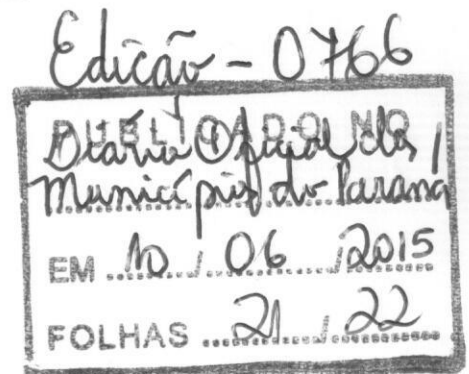 Edição - 0766
PUBLICADO NO
Diário Oficial dos
Municípios do Paraná
EM 10 / 06 / 2015
FOLHAS 21 / 22